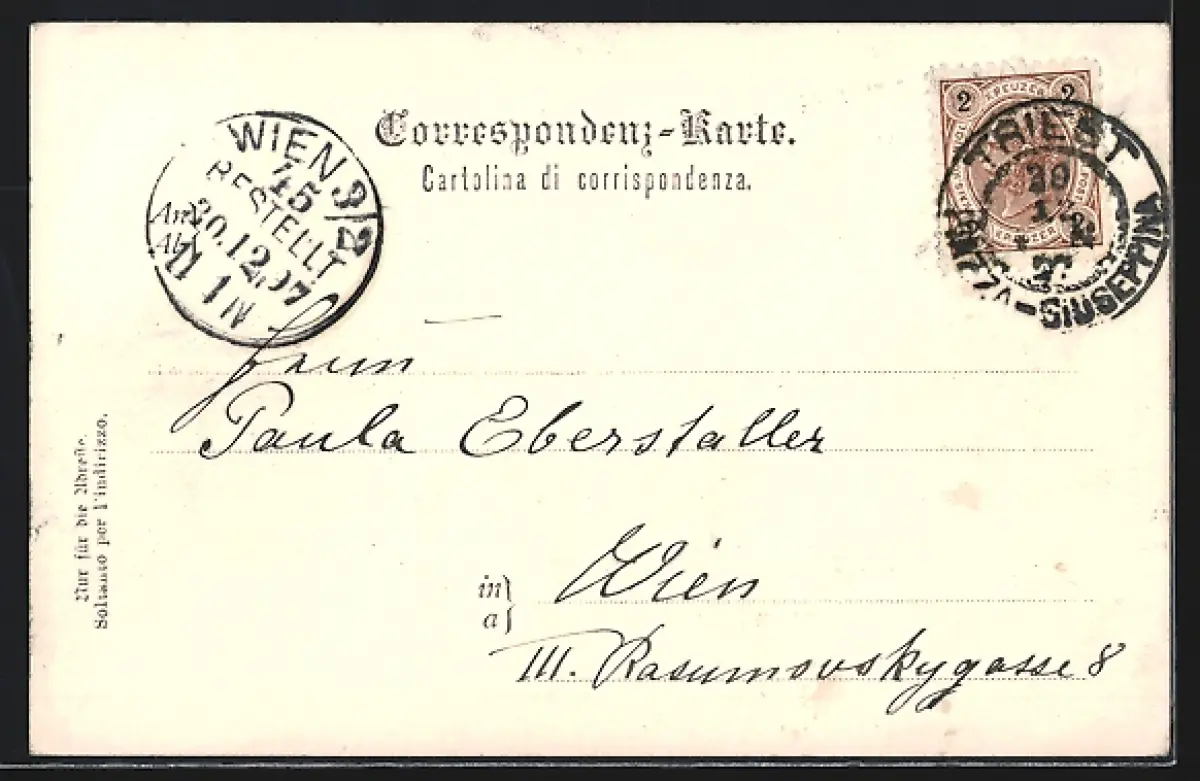 Correspondenz-Karte.
Cartolina di corrispondenza.
2 KREUZER 2
2
KREUZER
TRIEST
20
PIAZZA-GIUSEPPINA
WIEN 3/2
45
BESTELLT
20.12.97
1 N
Paula Eberstaller
in
a
Wien
III. Rasumovskygasse 8
Nur für die Adresse.
Soltanto per l'indirizzo.